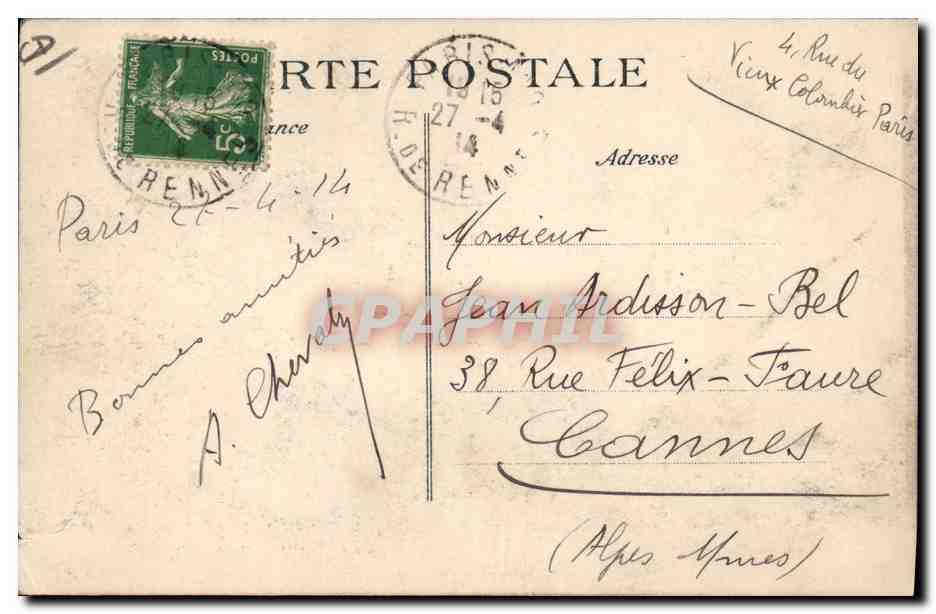 CARTE POSTALE
Adresse
POSTES
REPUBLIQUE FRANÇAISE
5c
RENNES
PARIS
15
27 -4
14
R. DE RENNES
4, Rue du
Vieux Colombier Paris
Paris 27-4-14
Bonnes amitiés
A. Chevaly
Monsieur
Jean Ardisson - Bel
38, Rue Félix - Faure
Cannes
(Alpes Mmes)
CPAPHIL